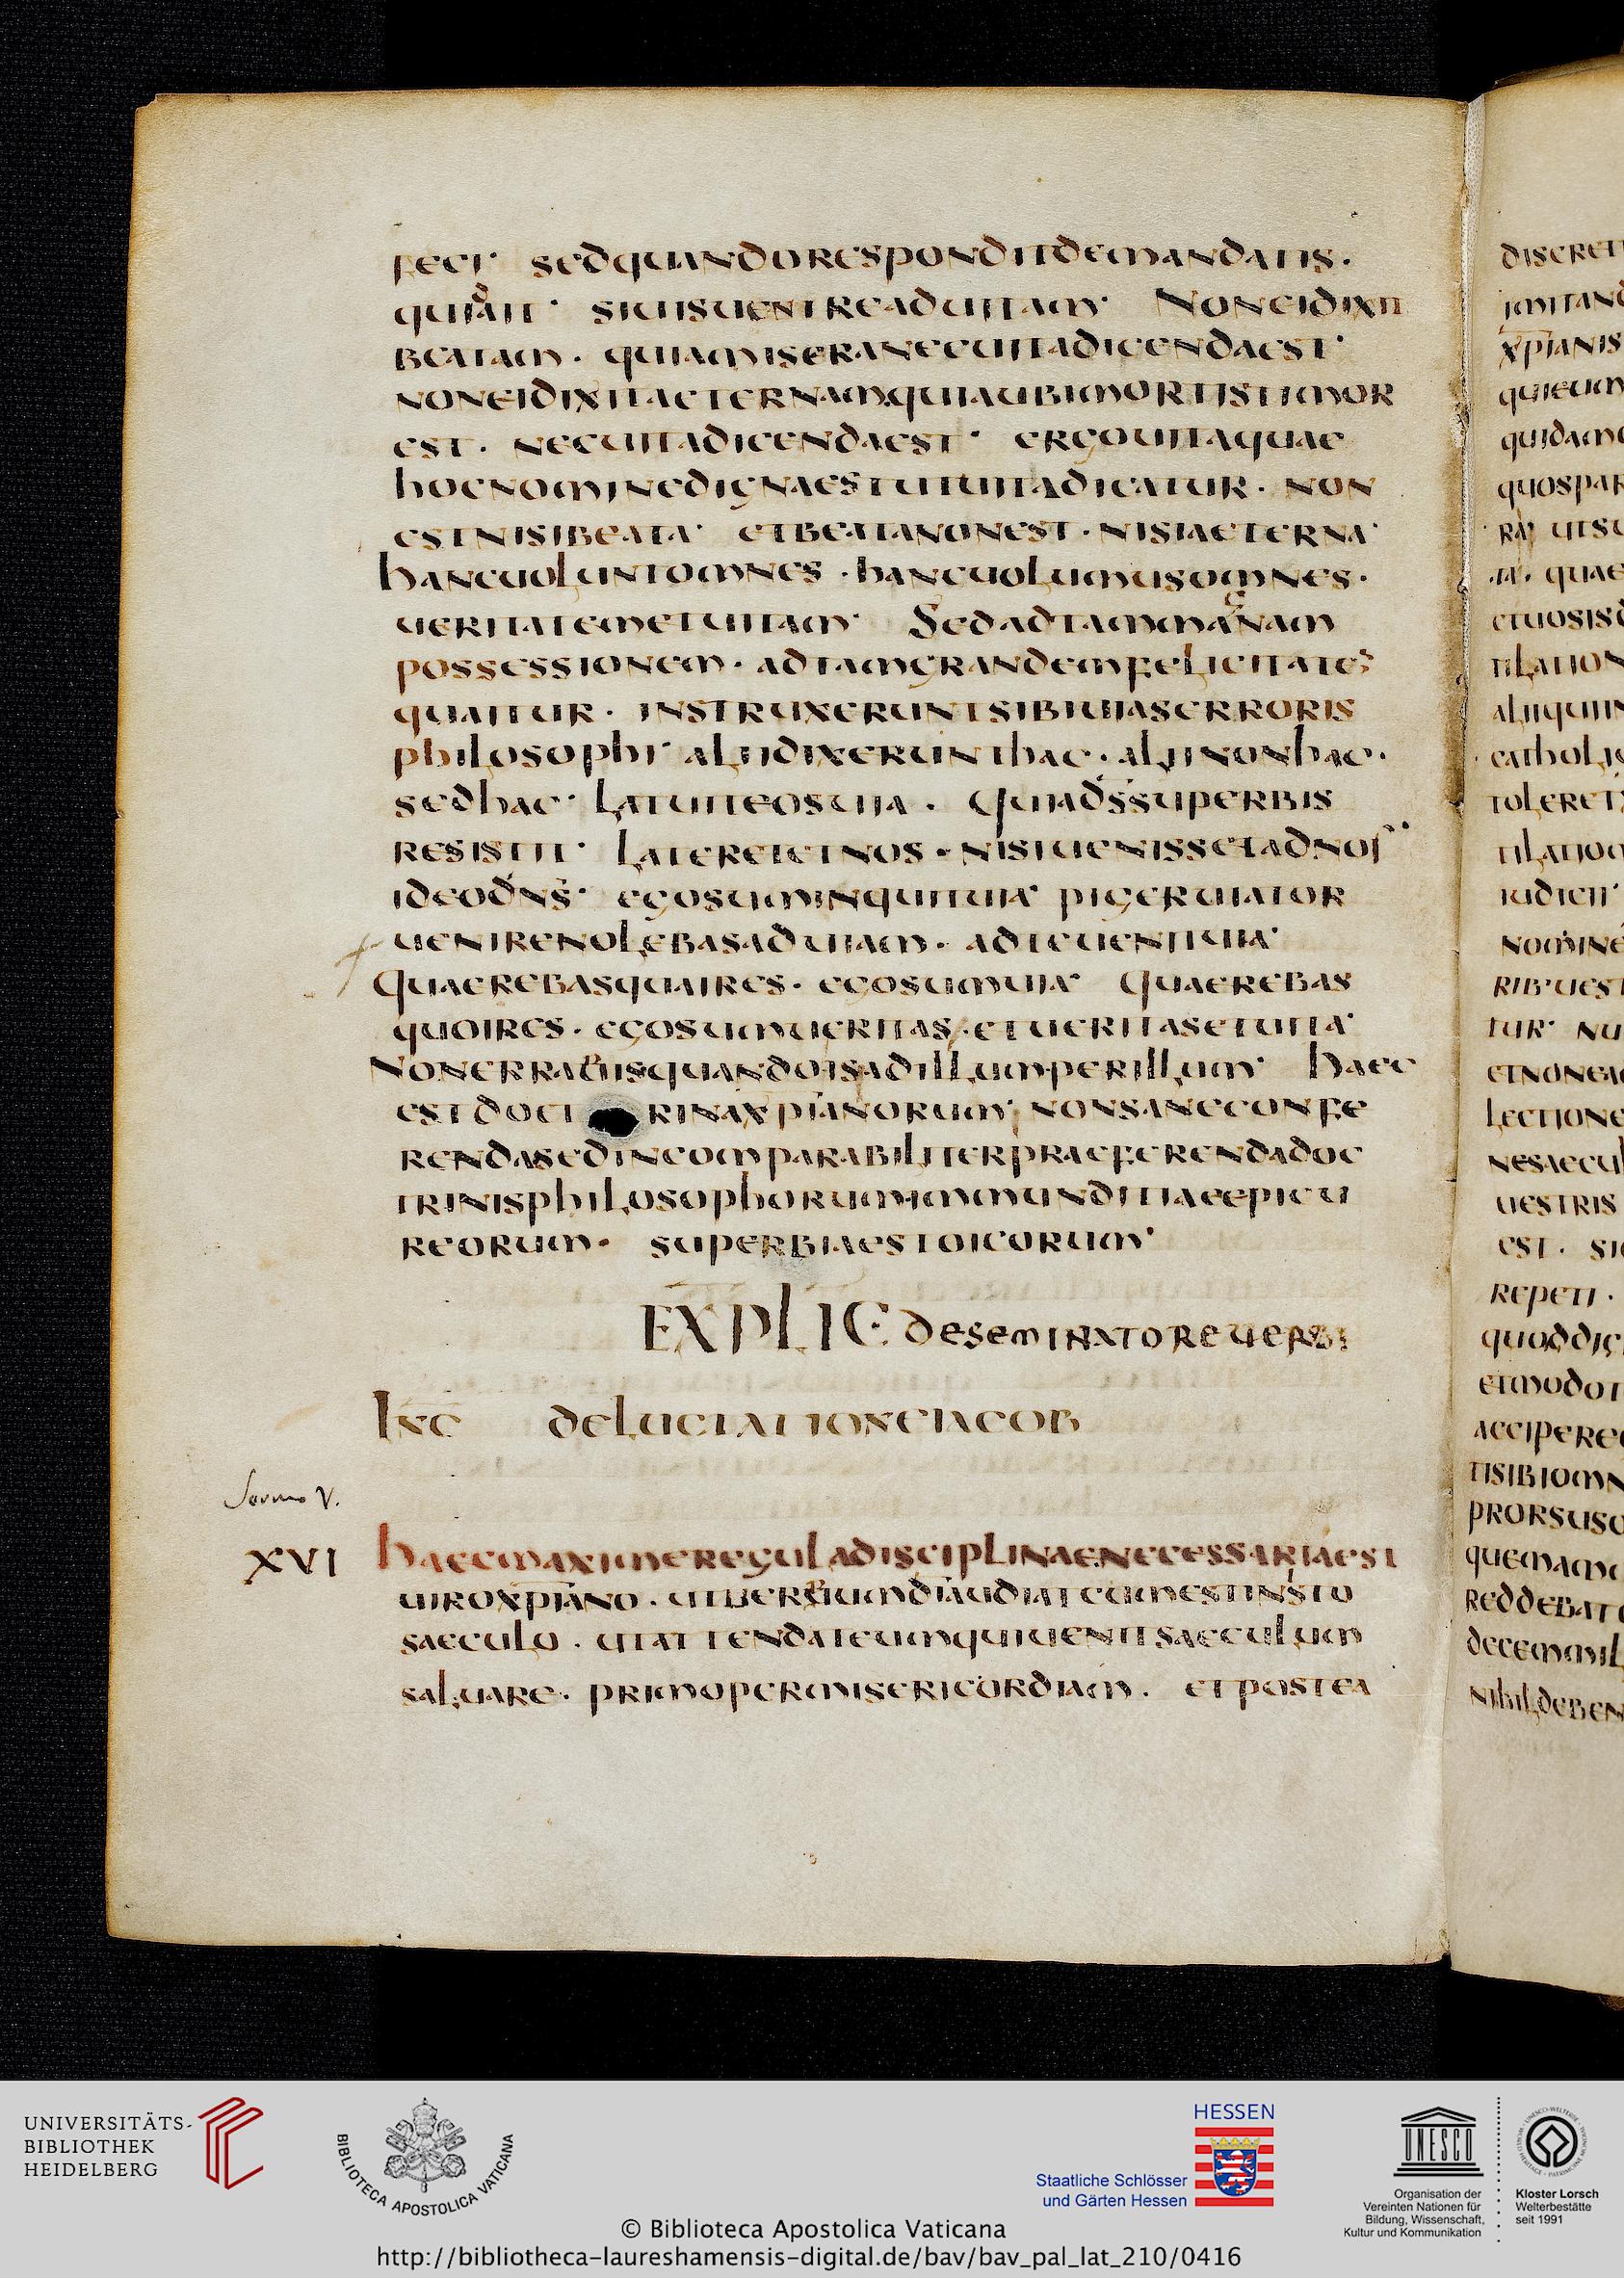 feci· sedquandorespondit demandatis·
quidait· siuisuenireaduitam· Noneidixit
beatam· quiamiseranecuitadicendaest·
noneidixitaeternamquiaubimortistimor
est· necuitadicendaest· ergouitaquae
hocnominedignaestutuitadicatur· non
estnisibeata· etbeatanonest· nisiaeterna·
hancuoluntomnes· hancuolumusomnes·
ueritatemetuitam· Sedadtammagnam
possessionem· adtamgrandemfelicitatē
quaitur· instruxeruntsibiuiaserroris
philosophi· aliidixerunthac· aliinonhac·
sedhac· latuiteosuia· Quiad̄s̄superbis
resistit· lateretetnos· nisiuenissetadnos·
ideodn̄s· egosuminquituia· pigeruiator
uenirenolebasaduiam· adteuenituia·
Quaerebasquaires· egosumuia· Quaerebas
quoires· egosumueritas· etueritasetuita·
Nonerrabisquandoisadillumperillum· Haec
estdoctrinaxp̄ianorum· nonsaneconfe
rendasedincomparabiliterpraeferendadoc
trinisphilosophorumimmunditiaeepicu
reorum· superbiaestoicorum·
EXPLIC· deseminatoreuerbi
Inc deluctationeiacob
Sermo V.
XVI Haecmaximereguladisciplinaenecessariaest
uiroxp̄iano· utuerbumd̄iaudiatcumestinisto
saeculo· utattendateumquiuenitsaeculum
saluare· primopermisericordiam· etpostea
discreti
imitand
xp̄ianis
quieum
quidam
quospar
ra utsu
.ta. quae
ctuosis
tilation
aliiquiin
catholic
toleret
tilatio
iudicii·
nomine
rib·uest
tur· nu
etnonea
lectione
nesaecul
uestris
est· si
repeti·
quoddic
etmodot
accipere
tisibiomn
prorsus
quemam
reddebat
decemmil
nihildeben
UNIVERSITÄTS-
BIBLIOTHEK
HEIDELBERG
BIBLIOTECA APOSTOLICA VATICANA
HESSEN
Staatliche Schlösser
und Gärten Hessen
UNESCO
Organisation der
Vereinten Nationen für
Bildung, Wissenschaft,
Kultur und Kommunikation
Kloster Lorsch
Welterbestätte
seit 1991
© Biblioteca Apostolica Vaticana
http://bibliotheca-laureshamensis-digital.de/bav/bav_pal_lat_210/0416